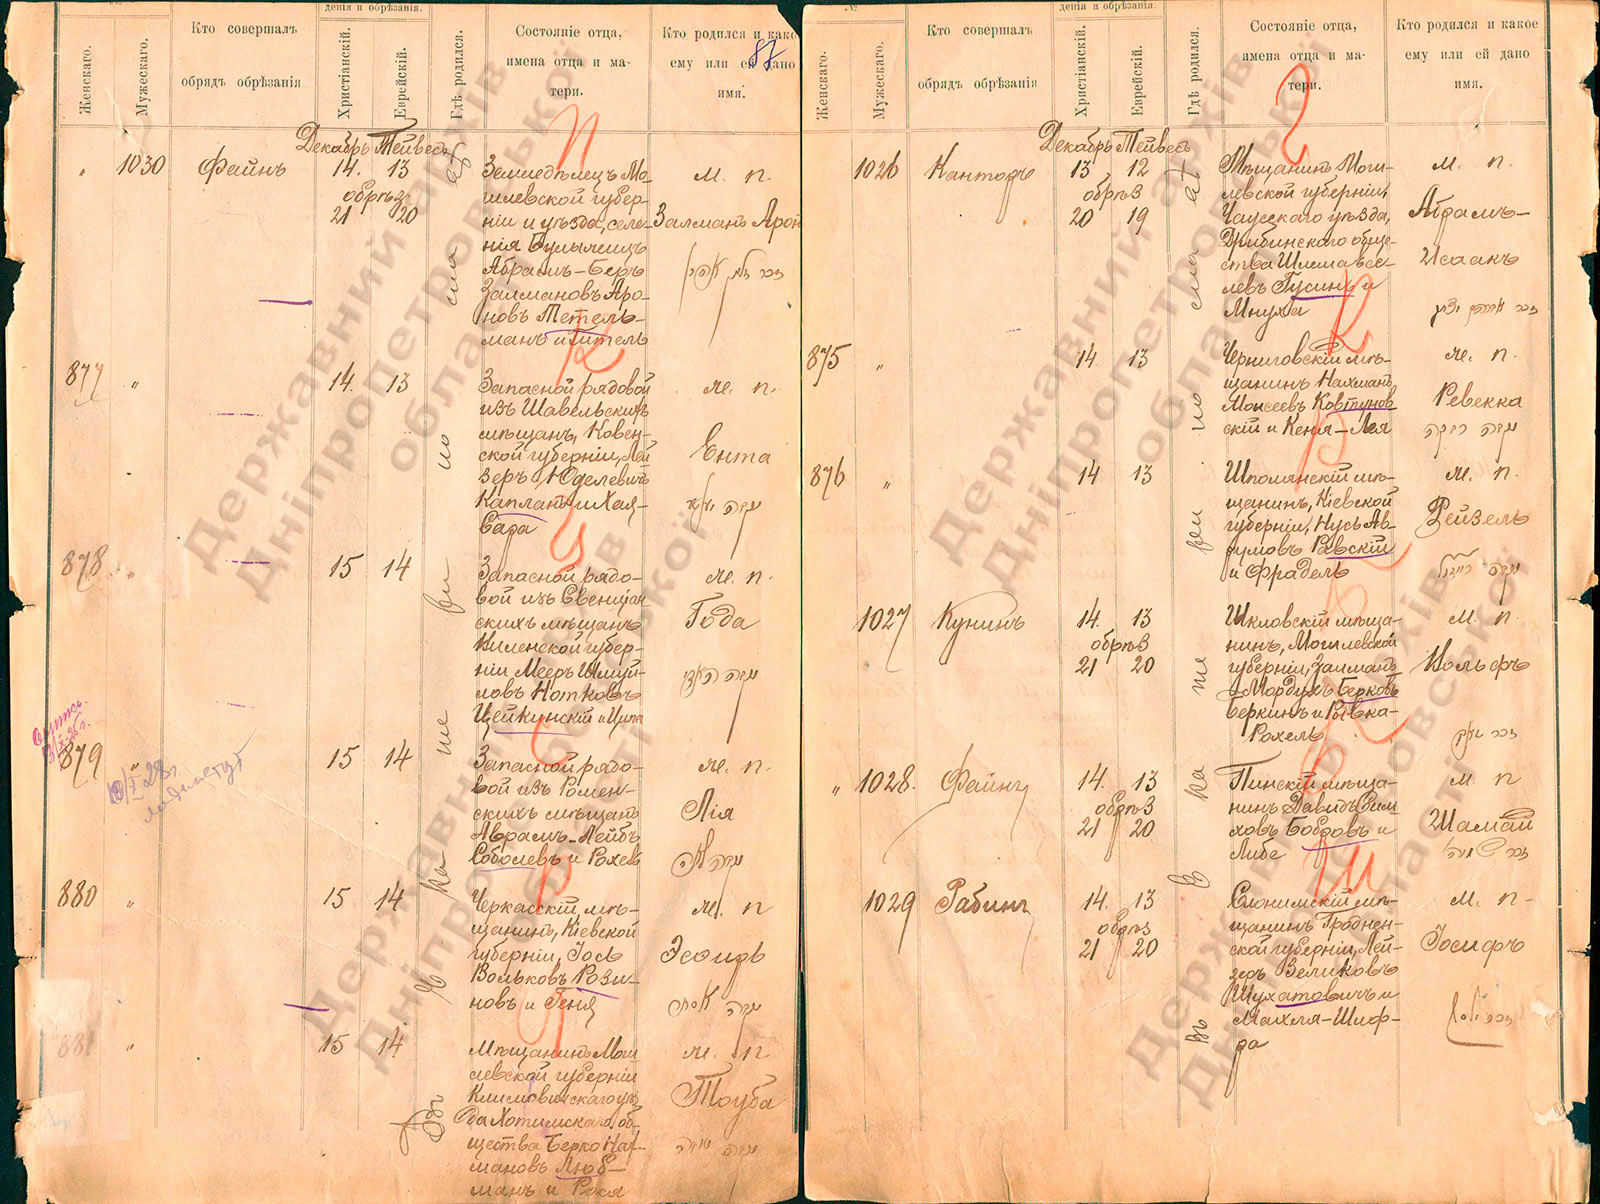 87
дения и обрѣзанія.
Женскаго.
Мужескаго.
Кто совершалъ
обрядъ обрѣзанія.
Христіанскій.
Еврейскій.
Гдѣ родился.
Состояніе отца,
имена отца и ма-
тери.
Кто родился и какое
ему или ей дано
имя.
Декабрь Тейвесъ
1030 Файнъ 14. 13
обрѣз.
21 20
Земледѣлецъ Мо-
гилевской губер-
ніи и уѣзда, селе-
нія
Абрамъ-Беръ
Залмановъ Аро-
новъ Тетель-
манъ и Гитель
м. п.
Залманъ Арон
877 " 14. 13
Запасной рядовой
изъ Шавельскихъ
мѣщанъ, Ковен-
ской губерніи, Лей
зеръ Юделевичъ
Капланъ и Хая-
Сара
ж. п.
Ента
878 " 15 14
Запасной рядо-
вой изъ Свенцян
скихъ мѣщанъ
Виленской губер-
ніи Мееръ Шмуй-
ловъ Нотковъ
Цейкинскій и Ципа
ж. п.
Года
879 " 15 14
Запасной рядо-
вой изъ Ромен-
скихъ мѣщанъ
Аврамъ-Лейбъ
Соболевъ и Рохель
ж. п.
Лія
880 " 15 14
Черкасскій мѣ-
щанинъ, Кіевской
губерніи, Іось
Вольковъ Рози-
новъ и Геня
ж. п
Эсѳирь
881 " 15 14
Мѣщанинъ Моги
левской губерніи
Климовичскаго уѣз
да Хотимскаго об-
щества Берко Нах-
мановъ Люб-
манъ и Рося
ж. п
Тоуба
дения и обрѣзанія.
№
Женскаго.
Мужескаго.
Кто совершалъ
обрядъ обрѣзанія
Христіанскій.
Еврейскій.
Гдѣ родился.
Состояніе отца,
имена отца и ма-
тери.
Кто родился и какое
ему или ей дано
имя.
Декабрь Тейвесъ
1026 Канторъ 13 12
обрѣз
20 19
Мѣщанинъ Моги-
левской губерніи,
Чаусскаго уѣзда,
Дрибинскаго обще-
ства
левъ Гусинъ и
Мнуха
м. п.
Абрамъ-
Исаакъ
875 " 14 13
Черниговскій мѣ-
щанинъ Нахманъ
Моисеевъ Ковтунов
скій и Кеня-Лея
ж. п.
Ревекка
876 " 14 13
Шполянскій мѣ-
щанинъ, Кіевской
губерніи, Нусь Ав-
румовъ Равскій
и Фрадель
ж. п.
Рейзель
1027 Кунинъ 14. 13
обрѣз
21 20
Шкловскій мѣща-
нинъ, Могилевской
губерніи, Залманъ
-Мордухъ Берковъ
Беркинъ и Рывка-
Рохель
м. п.
Вольфъ
" 1028. Файнъ 14. 13
обрѣз
21 20
Пинскій мѣща-
нинъ Давидъ Сим
ховъ Бобровъ и
Либе
м. п
Шамай
1029 Рабинъ 14. 13
обрѣз
21 20
Слонимскій мѣ-
щанинъ Гроднен-
ской губерніи, Лей-
зеръ Зеликовъ
Шухатовичъ и
Махля-Шиф-
ра
м. п.
Іосифъ
Державний архів
Дніпропетровської
області